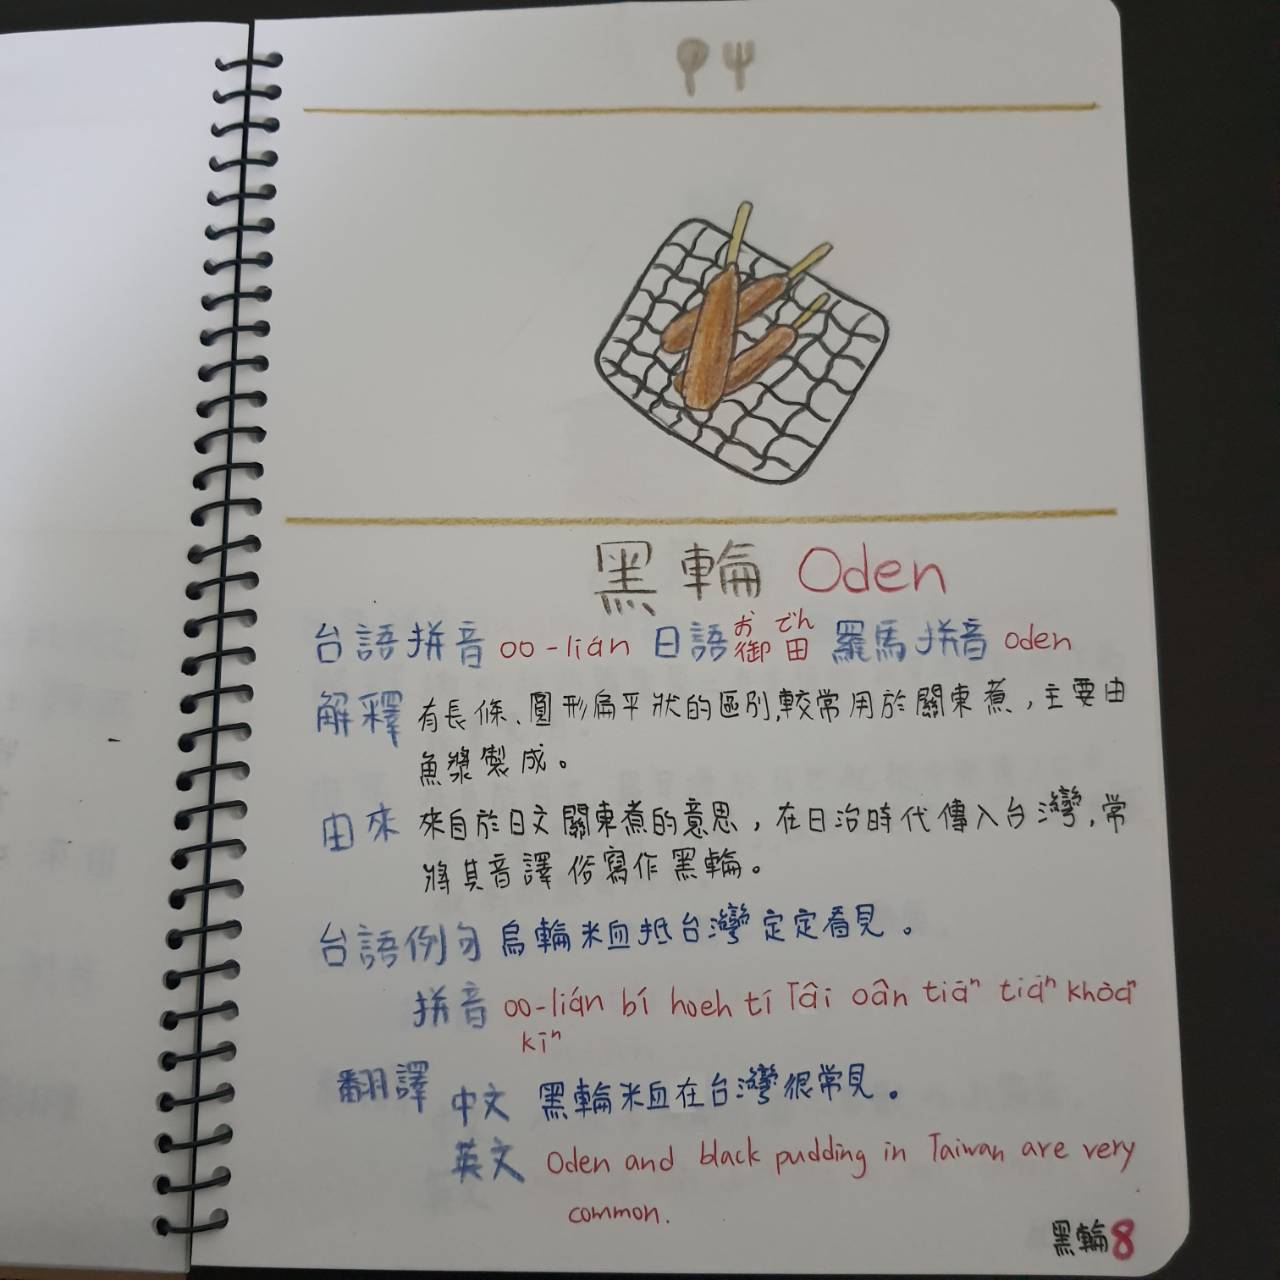 黑輪 Oden
台語拼音 oo-lián 日語 御田 おでん 羅馬拼音 oden
解釋 有長條、圓形扁平狀的區別,較常用於關東煮，主要由
魚漿製成。
由來 來自於日文關東煮的意思，在日治時代傳入台灣,常
將其音譯俗寫作黑輪。
台語例句 烏輪米血抵台灣定定看見。
拼音 oo-lián bí hoeh tí Tâi oân tiāⁿ tiāⁿ khòaⁿ
kīⁿ
翻譯 中文 黑輪米血在台灣很常見。
英文 Oden and black pudding in Taiwan are very
common.
黑輪8